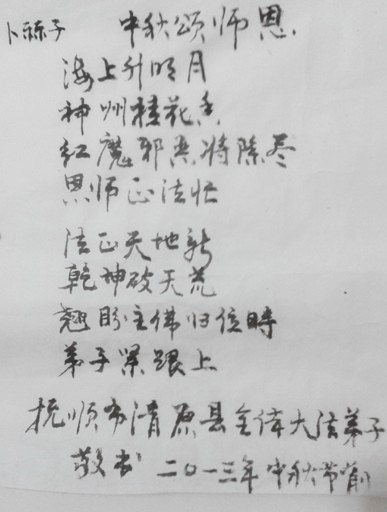 卜算子 中秋颂师恩
海上升明月
神州桂花香
红魔邪恶将除尽
恩师正法忙
法正天地新
乾坤破天荒
翘盼主佛归位时
弟子紧跟上
抚顺市清原县全体大法弟子
敬书 二〇一三年中秋节前